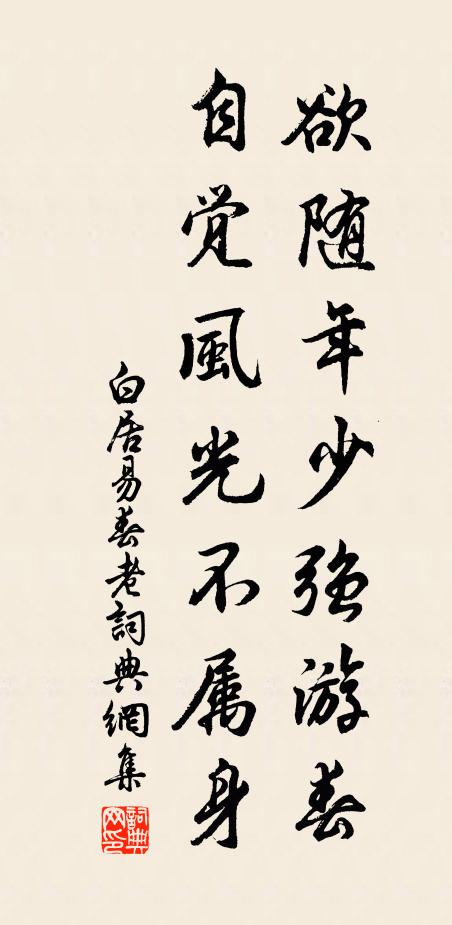 欲随年少强游春
自觉風光不属身
白居易春老詞典網集
詞典网印